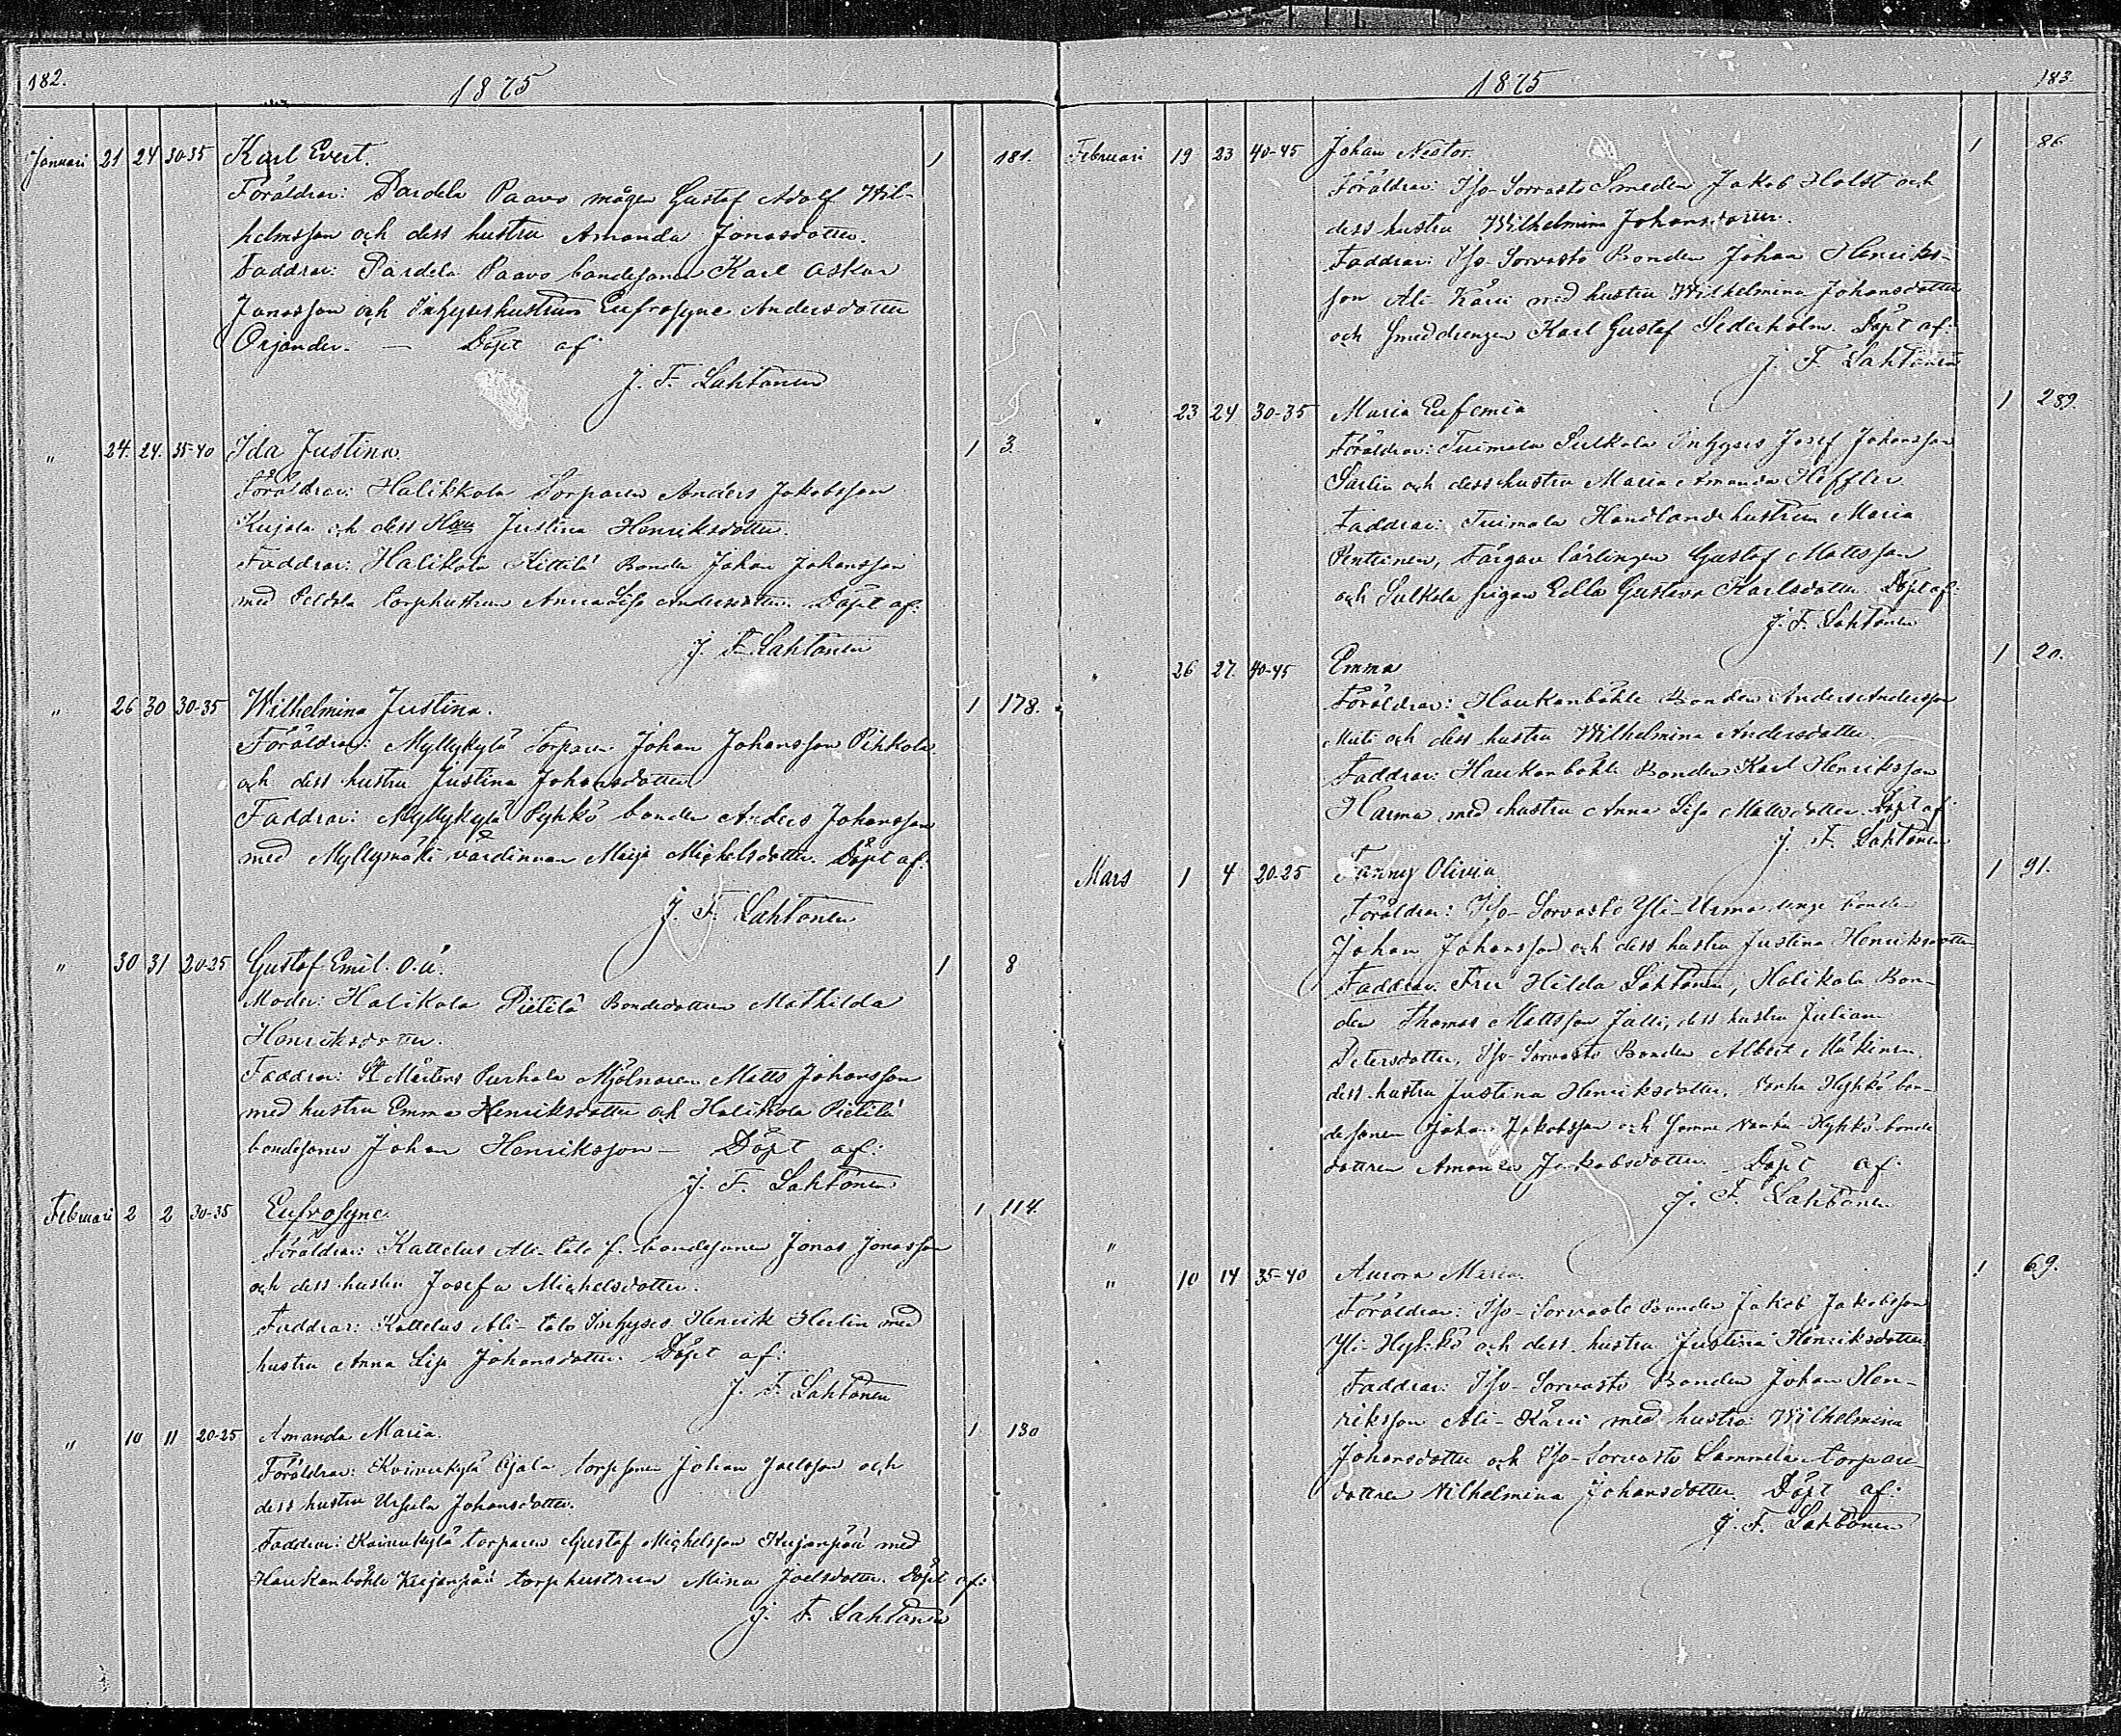 182.
1875
Januari 21 24 30-35 Karl Evert. 1 181.
Föräldrar: Pardela Paavo mågen Gustaf Adolf Wil-
helmsson och dess hustru Amanda Jonasdotter.
Faddrar: Pardela Paavo bondesonen Karl Oskar
Jonasson och Inhyseshustrun Eufrosyne Andersdotter
Orjander. — Döpt af
J. F. Lahtonen
" 24. 24. 35-40 Ida Justina. 1 3.
Föräldrar: Halikkola Torparen Anders Jakobsson
Kujala och dess Hu Justina Henriksdotter.
Faddrar: Halikola Kittilä Bonden Johan Johansson
med Peldola torphustrun Anna Lisa Andersdotter. Döpt af:
J. F. Lahtonen
" 26 30 30-35 Wilhelmina Justina. 1 178.
Föräldrar: Myllykylä Torparen Johan Johansson Pihkola
och dess hustru Justina Johansdotter
Faddrar: Myllykylä Pyhkö bonden Anders Johansson
med Myllymäki värdinnan Maija Michelsdotter. Döpt af:
J. F. Lahtonen
" 30 31 20-25 Gustaf Emil. o.ä. 1 8
Moder: Halikola Pietilä Bondedottren Mathilda
Henriksdotter.
Faddrar: St Mårtens Purhala Mjölnaren Matts Johansson
med hustru Emma Henriksdotter och Halikola Pietilä
bondesonen Johan Henriksson — Döpt af:
J. F. Lahtonen
Februari 2 2 30-35 Eufrosyne. 1 114.
Föräldrar: Kattelus Ali-talo f. bondesonen Jonas Jonasson
och dess hustru Josefa Michelsdotter.
Faddrar: Kattelus Ali-talo Inhyses Henrik Helin med
hustru Anna Lisa Johansdotter. Döpt af:
J. F. Lahtonen
" 10 11 20-25 Amanda Maria. 1 130
Föräldrar: Koivukylä Ojala torpsonen Johan Joelsson och
dess hustru Ursula Johansdotter.
Faddrar: Koivukylä torparen Gustaf Michelsson Kujanpää med
Haukanböhle Kujanpää torphustrun Mina Joelsdotter. Döpt af:
J. F. Lahtonen
1875
183.
Februari 19 23 40-45 Johan Nestor. 1 86
Föräldrar: Iso-Sorvasto Smeden Jakob Holst och
dess hustru Wilhelmina Johansdotter.
Faddrar: Iso-Sorvasto Bonden Johan Henriks-
son Ali-Kärri med hustru Wilhelmina Johansdotter
och Smeddrengen Karl Gustaf Sederholm. Döpt af:
J. F. Lahtonen
" 23 24 30-35 Maria Eufemia 1 289.
Föräldrar: Tuimala Sulkola Inhyses Josef Johansson
Sarlin och dess hustru Maria Amanda Höffler.
Faddrar: Tuimala Handlandehustrun Maria
Penttinen, Färgare lärlingen Gustaf Mattsson
och Sulkola pigan Edla Gustava Karlsdotter. Döpt af:
J. F. Lahtonen
" 26 27. 40-45 Emma 1 20.
Föräldrar: Haukanböhle Bonden Anders Andersson
Muti och dess hustru Wilhelmina Andersdotter.
Faddrar: Haukanböhle Bonden Karl Henriksson
Harma med hustru Anna Lisa Mattsdotter. Döpt af
J. F. Lahtonen
Mars 1 4 20-25 Fanny Olivia 1 91.
Föräldrar: Iso-Sorvasto Yli-Urmas unge bonden
Johan Johansson och dess hustru Justina Henriksdotter
Faddrar: Fru Hilda Lahtonen, Halikola Bon-
den Thomas Mattsson Jalli, dess hustru Juliana
Petersdotter, Iso-Sorvasto Bonden Albert Mäkinen,
dess hustru Justina Henriksdotter, Vanha Hykkö bon-
desonen Johan Jakobsson och Samma Vanha-Hykkö bonde
dottren Amanda Jakobsdotter. Döpt af:
J. F. Lahtonen
"
" 10 14 35-40 Aurora Maria. 1 69.
Föräldrar: Iso-Sorvasto Bonden Jakob Jakobsson
Yli-Hykkö och dess hustru Justina Henriksdotter
Faddrar: Iso-Sorvasto Bonden Johan Hen-
riksson Ali-Kärri med hustru Wilhelmina
Johansdotter och Iso-Sorvasto Lammela torpare-
dottren Wilhelmina Johansdotter. Döpt af:
J. F. Lahtonen